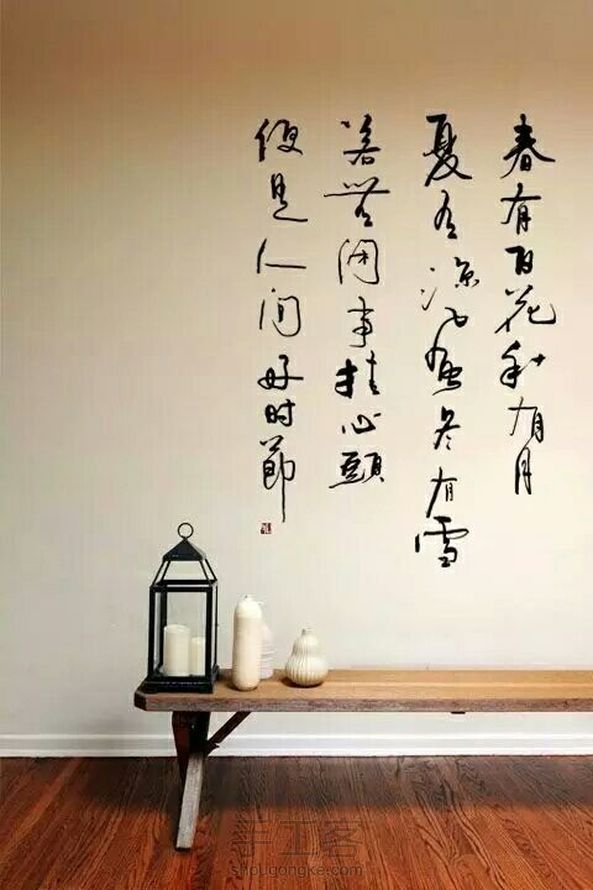 春有百花秋有月
夏有涼風冬有雪
若無闲事挂心頭
便是人间好时節
手工客
shougongke.com